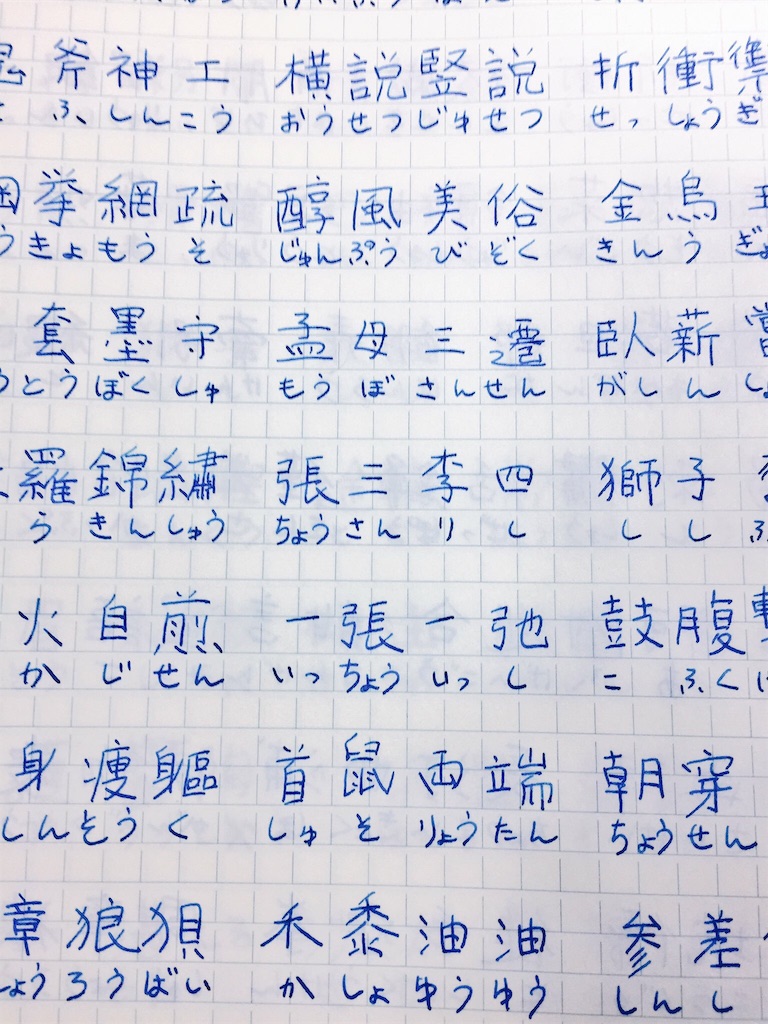 斧神工 横説竪説 折衝禦
ふしんこう おうせつじゅせつ せっしょうぎ
挙網疏 醇風美俗 金烏
うきょもうそ じゅんぷうびぞく きんうぎょ
套墨守 孟母三遷 臥薪嘗
うとうぼくしゅ もうぼさんせん がしんしょ
羅錦繡 張三李四 獅子奮
らきんしゅう ちょうさんりし ししふ
火自煎 一張一弛 鼓腹撃
かじせん いっちょういっし こふくげ
身痩軀 首鼠両端 朝穿
しんそうく しゅそりょうたん ちょうせん
章狼狽 禾黍油油 参差
ょうろうばい かしょゆうゆう しんし